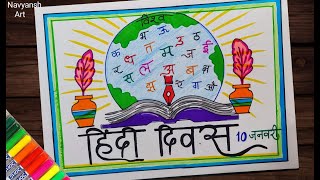 Navyansh
Art
विश्व
भ ऊ
क त उ ठ
ध म ज ई
र ल अ ब भ
स
हिंदी दिवस 10 जनवरी